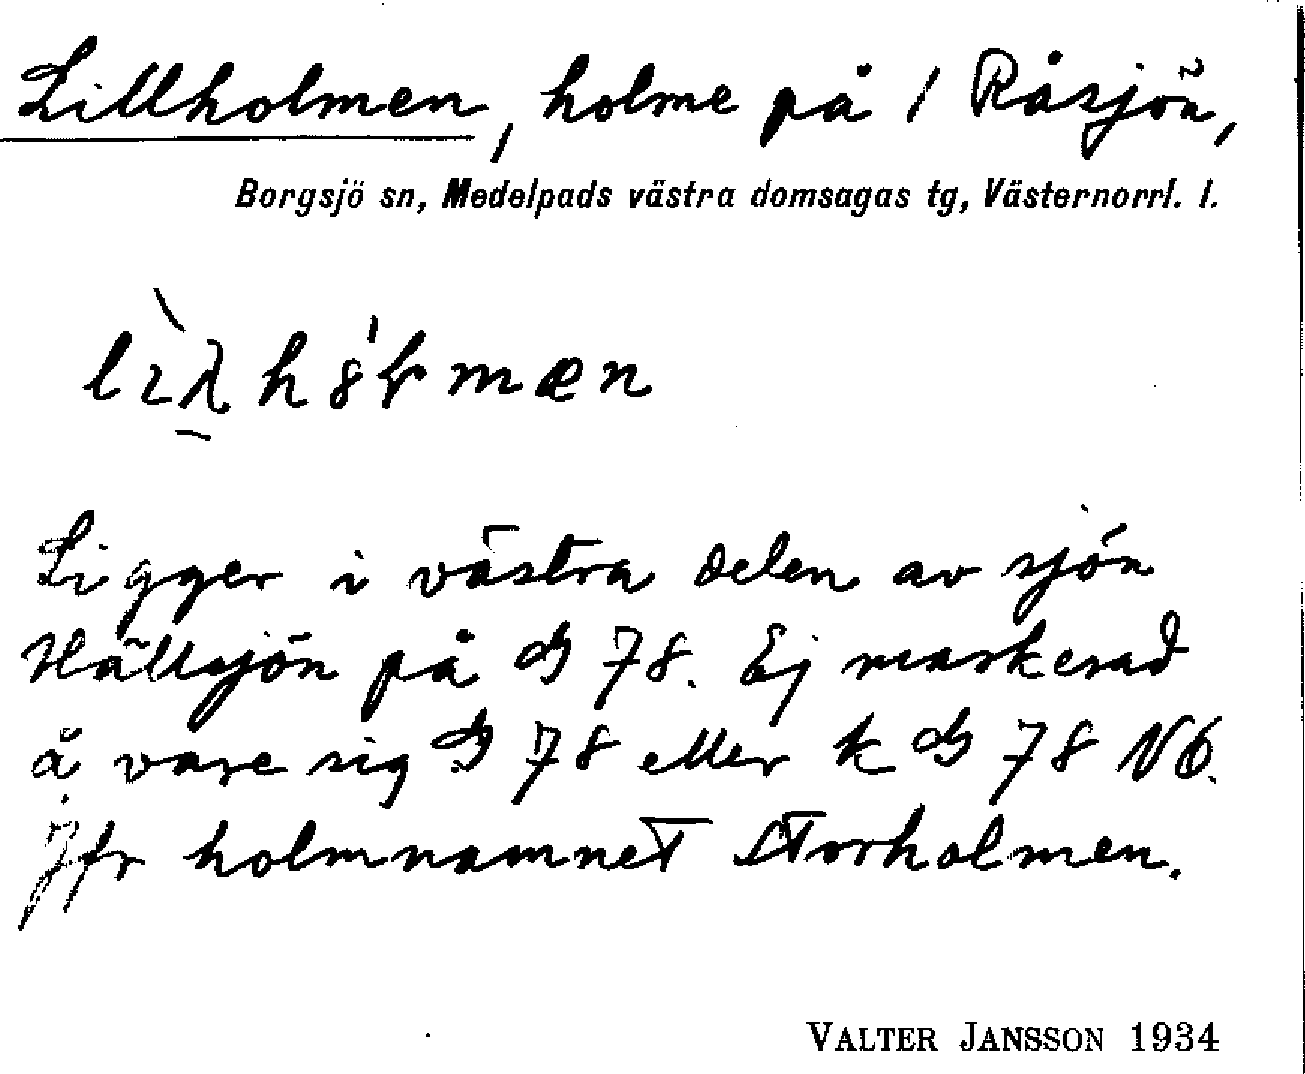 Lillholmen, holme på / Råsjön,
Borgsjö sn, Medelpads västra domsagas tg, Västernorrl. l.
Ligger i västra delen av sjön
Hällsjön på G 78. Ej markerad
å vare sig G 78 eller k G 78 NO.
Jfr holmnamnet Storholmen.
VALTER JANSSON 1934